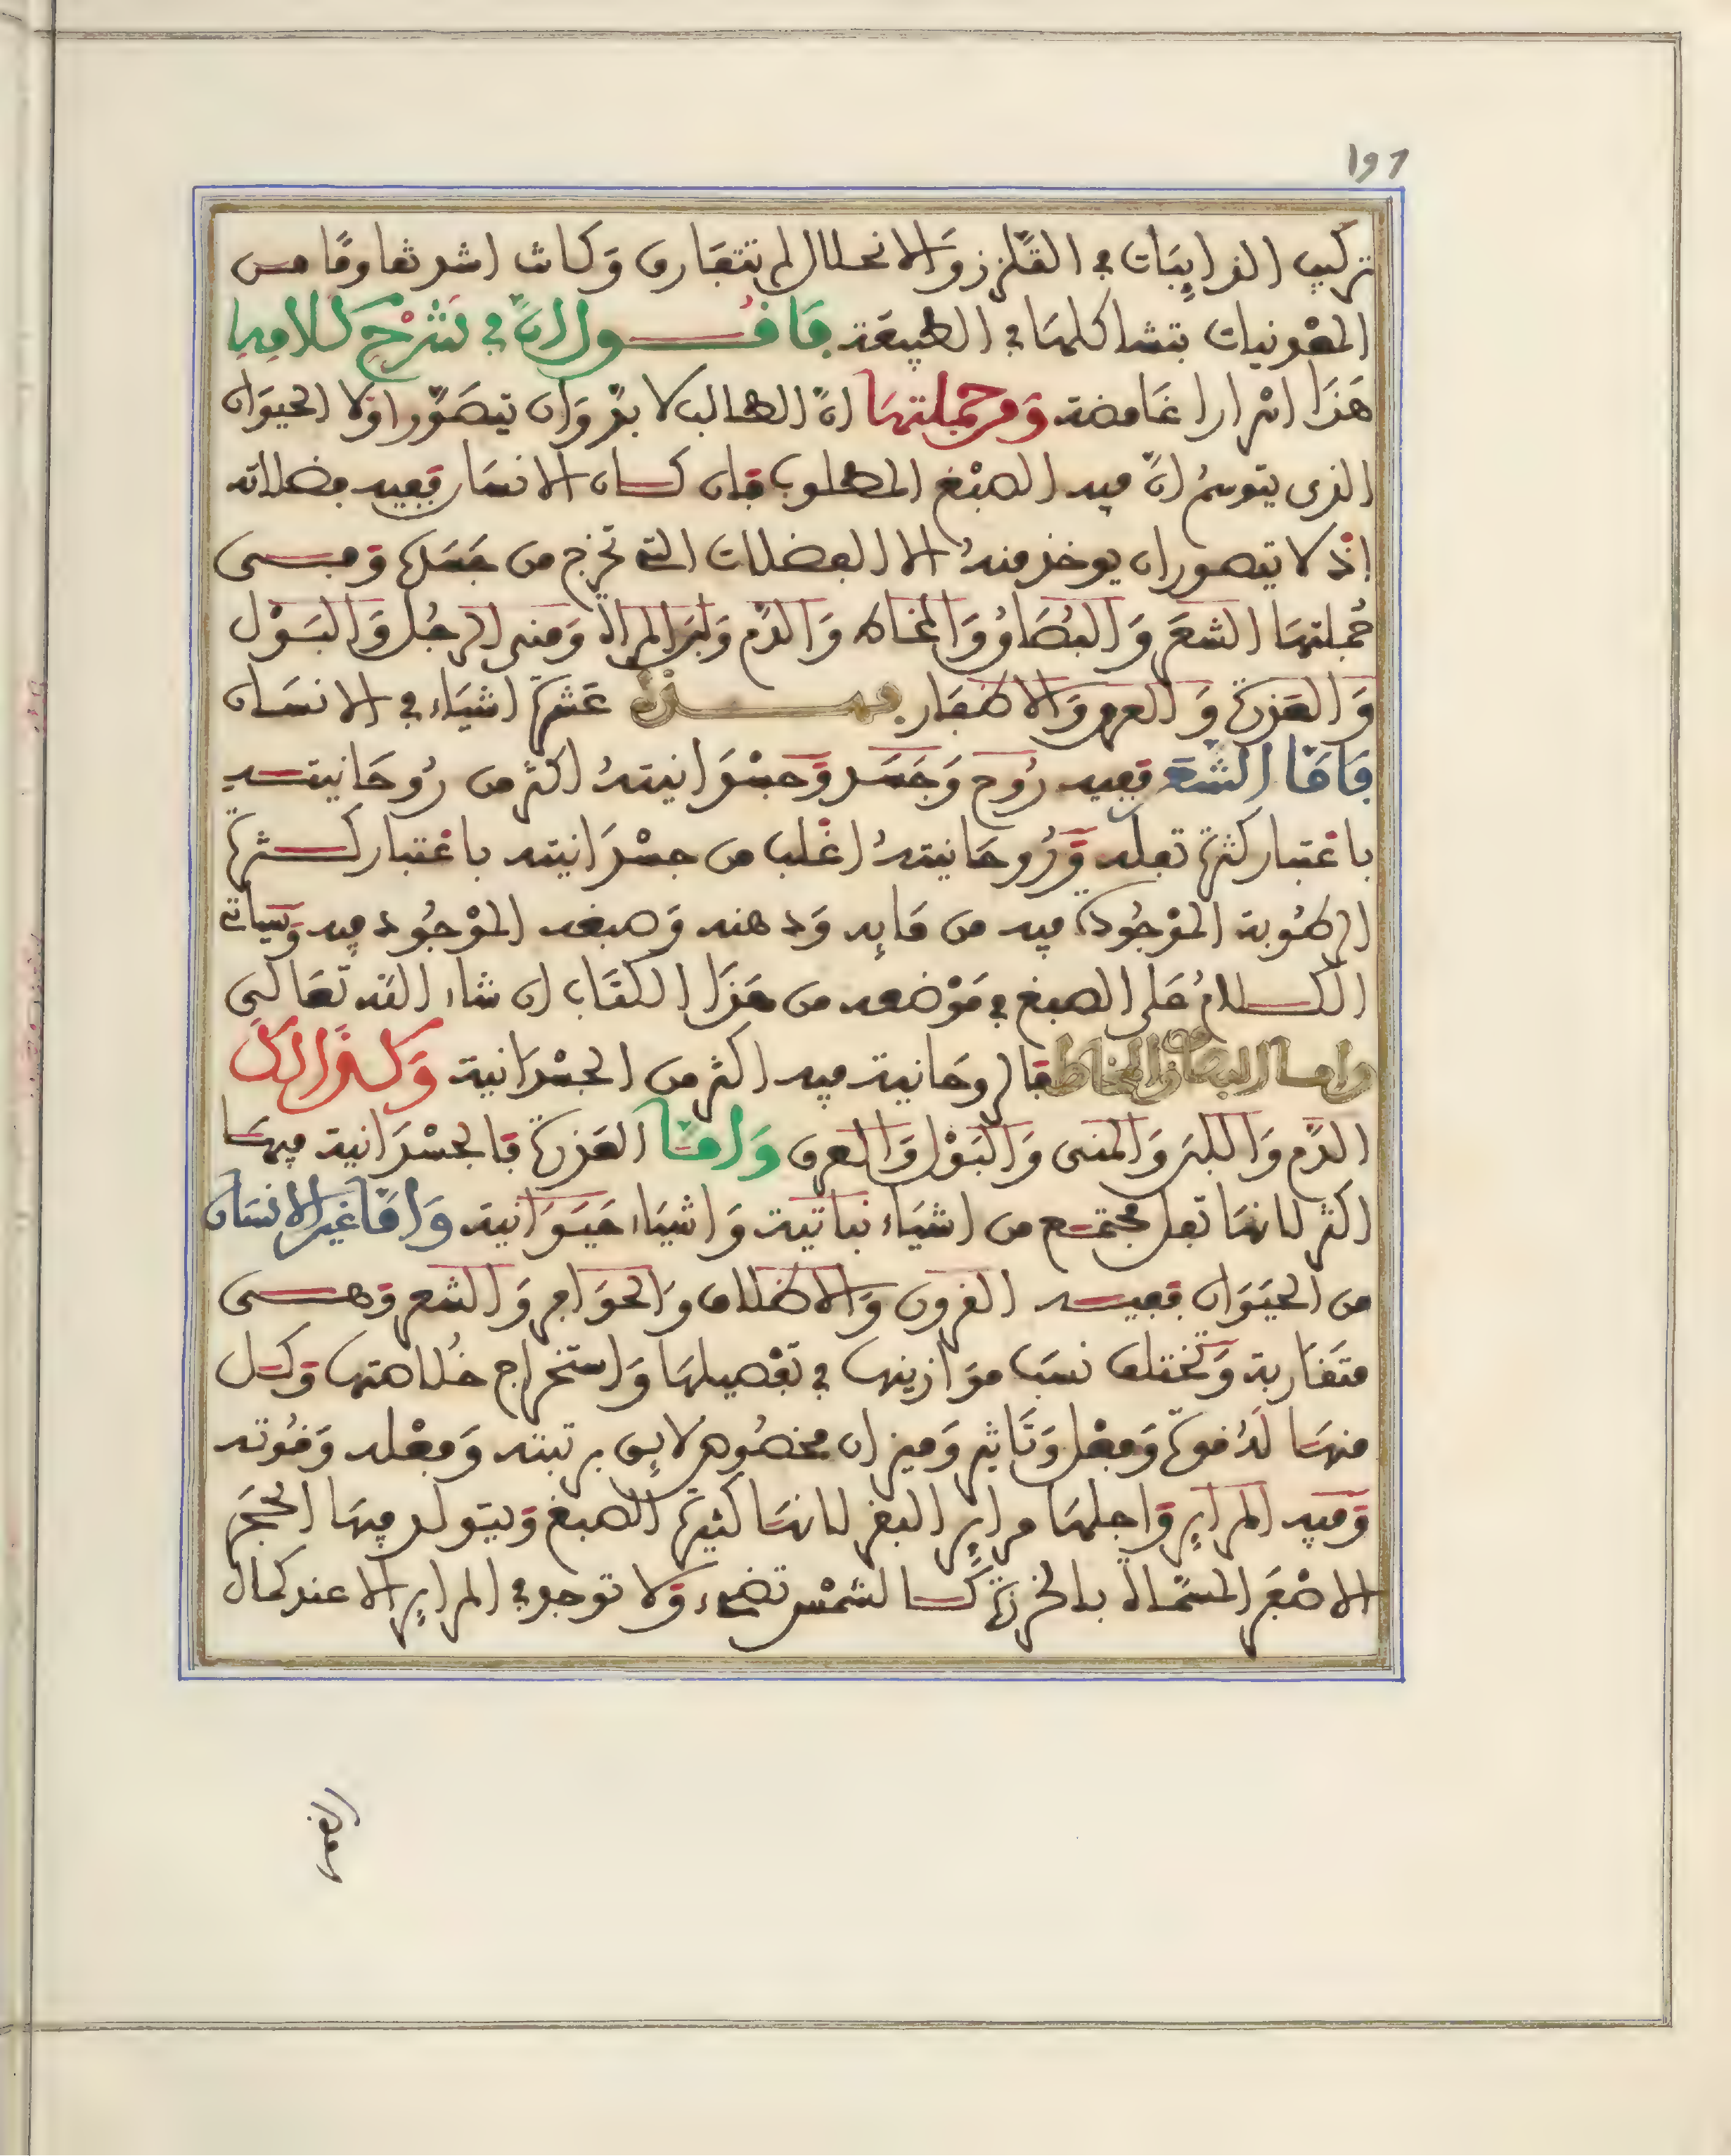 197
تركيب الذايبات في التلزز والانحلال لم تتفارق وكانت اشد تقاوما من
المعدنيات بتشاكلها في الطبيعة فاقول ان في شرح كلامه
هذا اسرارا غامضة ومن جملتها ان الطالب لا بد وان يتصور اولا الحيوان
الذى يتوسم ان فيه الصبغ المطلوب فان كان الانسان ففيه فضلاته
اذ لا يتصور ان يوخذ منه الا الفضلات التي تخرج من جسده وهى
جملتها الشعر والبصاق والمخاط والدم ولبن المراة ومنى الرجل والبول
والعذرة والعرق والاظفار فهذه عشرة اشياء في الانسان
فاما الشعر ففيه روح وجسد وجسدانيته اكثر من روحانيته
باعتبار كثرة ثفله وروحانيته اغلب من جسدانيته باعتبار كثرة
الرطوبة الموجودة فيه من مايه ودهنه وصبغه الموجود فيه وسياتي
الكلام على الصبغ في موضعه من هذا الكتاب ان شاء الله تعالى
واما البصاق والمخاط فالروحانية فيه اكثر من الجسدانية وكذالك
الدم واللبن والمنى والبول والعرق واما العذرة فالجسدانية فيها
اكثر لانها ثفل مجتمع من اشياء نباتية واشياء حيوانية واما غير الانسان
من الحيوان ففيه القرون والاظلاف والحوافر والشعر وهى
متقاربة وتختلف نسب موازينها في تفصيلها واستخراج خلاصتها وكل
منها له قوة وفعل وتاثير وميزان مخصوص لايق برتبته وفعله وقوته
وفيه المراير واجلها مراير البقر لانها كثيرة الصبغ ويتولد فيها الحجر
الاصفر المسمى بالخرزة كالشمس تضىء ولا توجد في المراير الا عند كمال